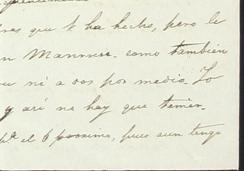 res que t ha hecho, pero le
n Manresa. como también
u ni a vos por medio. Yo
y así no hay que temer.
el 6 proximo, pues aun tengo